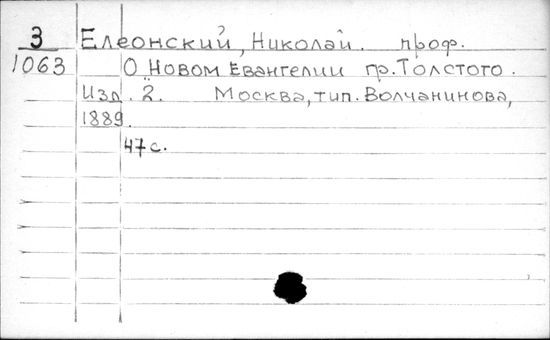 3 Елеонский, Николай. проф.
1063 О Новом Евангелии гр. Толстого.
Изд. 2. Москва, тип. Волчанинова,
1889.
47 с.